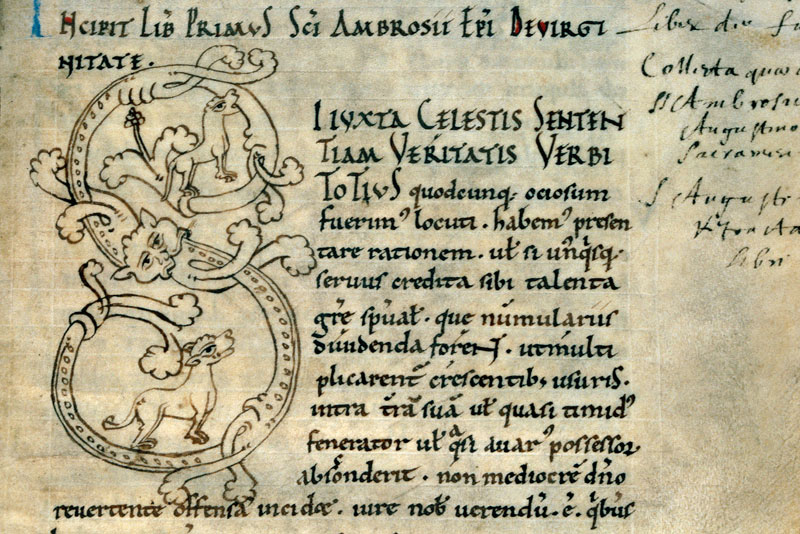 INCIPIT LIB PRIMUS SCI AMBROSII EPI DE VIRGI
NITATE.
SI IUXTA CELESTIS SENTEN
TIAM VERITATIS VERBI
TOTIUS quodcunq; ociosum
fuerim᾽ locuti. habem᾽ presen
tare rationem. uł si unq̇sq;
seruus credita sibi talenta
spūał. que numularius
diuidenda forent. ut multi
plicarent̄ crescentib; usuris.
intra t̄rā suā uł quasi timid᾽
fenerator uł q̇si auar᾽ possessor
absconderit. non mediocrē dn̄o
reuertente offensā incidᶒ. iure nob̄ uerendū. ē. q̇bus
Liber
Collecta
S Ambrosii
Augustino
S Augusti
Retracta
libri